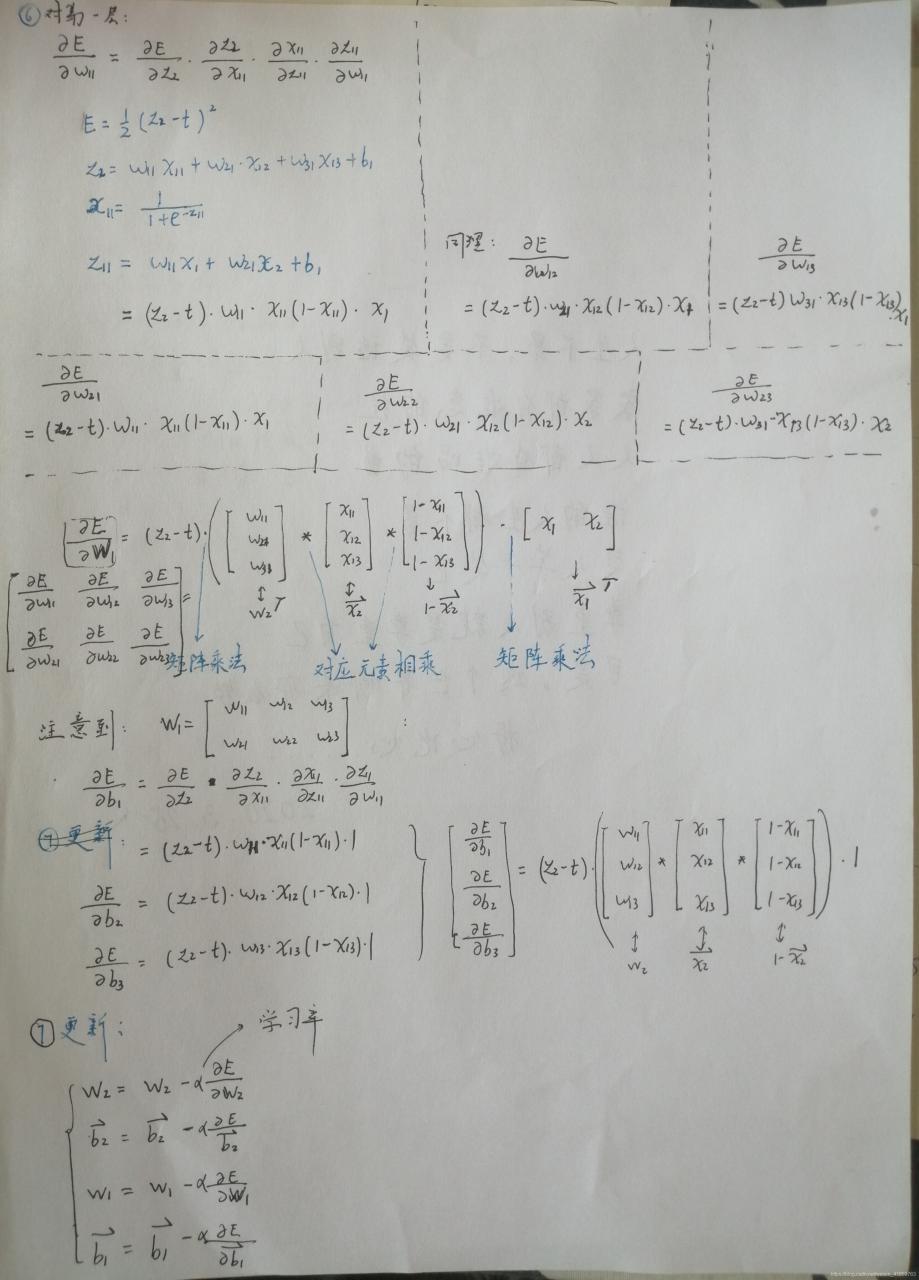 ⑥对第一层:
∂E/∂w11 = ∂E/∂z2 · ∂z2/∂x11 · ∂x11/∂z11 · ∂z11/∂w11
E = 1/2 (z2-t)²
z2 = w11 x11 + w21·x12 + w31 x13 + b1
x11 = 1/(1+e^-z11)
z11 = w11 x1 + w21 x2 + b1
= (z2-t)· w11 · x11(1-x11) · x1
同理: ∂E/∂w12
= (z2-t)·w21·x12(1-x12)·x1
∂E/∂w13
= (z2-t) w31·x13(1-x13)·x1
∂E/∂w21
= (z2-t)·w11· x11(1-x11)· x1
∂E/∂w22
= (z2-t)· w21· x12(1-x12)· x2
∂E/∂w23
= (z2-t)·w31·x13(1-x13)· x2
∂E/∂W1 = (z2-t)·([w11 w21 w31] * [x11 x12 x13] * [1-x11 1-x12 1-x13]) · [x1 x2]
[∂E/∂w11 ∂E/∂w12 ∂E/∂w13
∂E/∂w21 ∂E/∂w22 ∂E/∂w23] =
↕ w2ᵀ ↕ x2→ ↓ 1-x2→ ↓ x1→ᵀ
矩阵乘法 对应元素相乘 矩阵乘法
注意到: W1 = [w11 w12 w13
w21 w22 w23]
∂E/∂b1 = ∂E/∂z2 · ∂z2/∂x11 · ∂x1/∂z11 · ∂z11/∂w11
⑦更新: = (z2-t)·w11·x11(1-x11)·1
∂E/∂b2 = (z2-t)·w12·x12(1-x12)·1
∂E/∂b3 = (z2-t)·w13·x13(1-x13)·1
[∂E/∂b1 ∂E/∂b2 ∂E/∂b3] = (z2-t)·([w11 w12 w13] * [x11 x12 x13] * [1-x11 1-x12 1-x13]) · 1
↕ w2 ↕ x2→ ↕ 1-x2→
⑦更新:
学习率
W2 = W2 - α ∂E/∂W2
b2→ = b2→ - α ∂E/b2→
W1 = W1 - α ∂E/∂W1
b1→ = b1→ - α ∂E/∂b1→